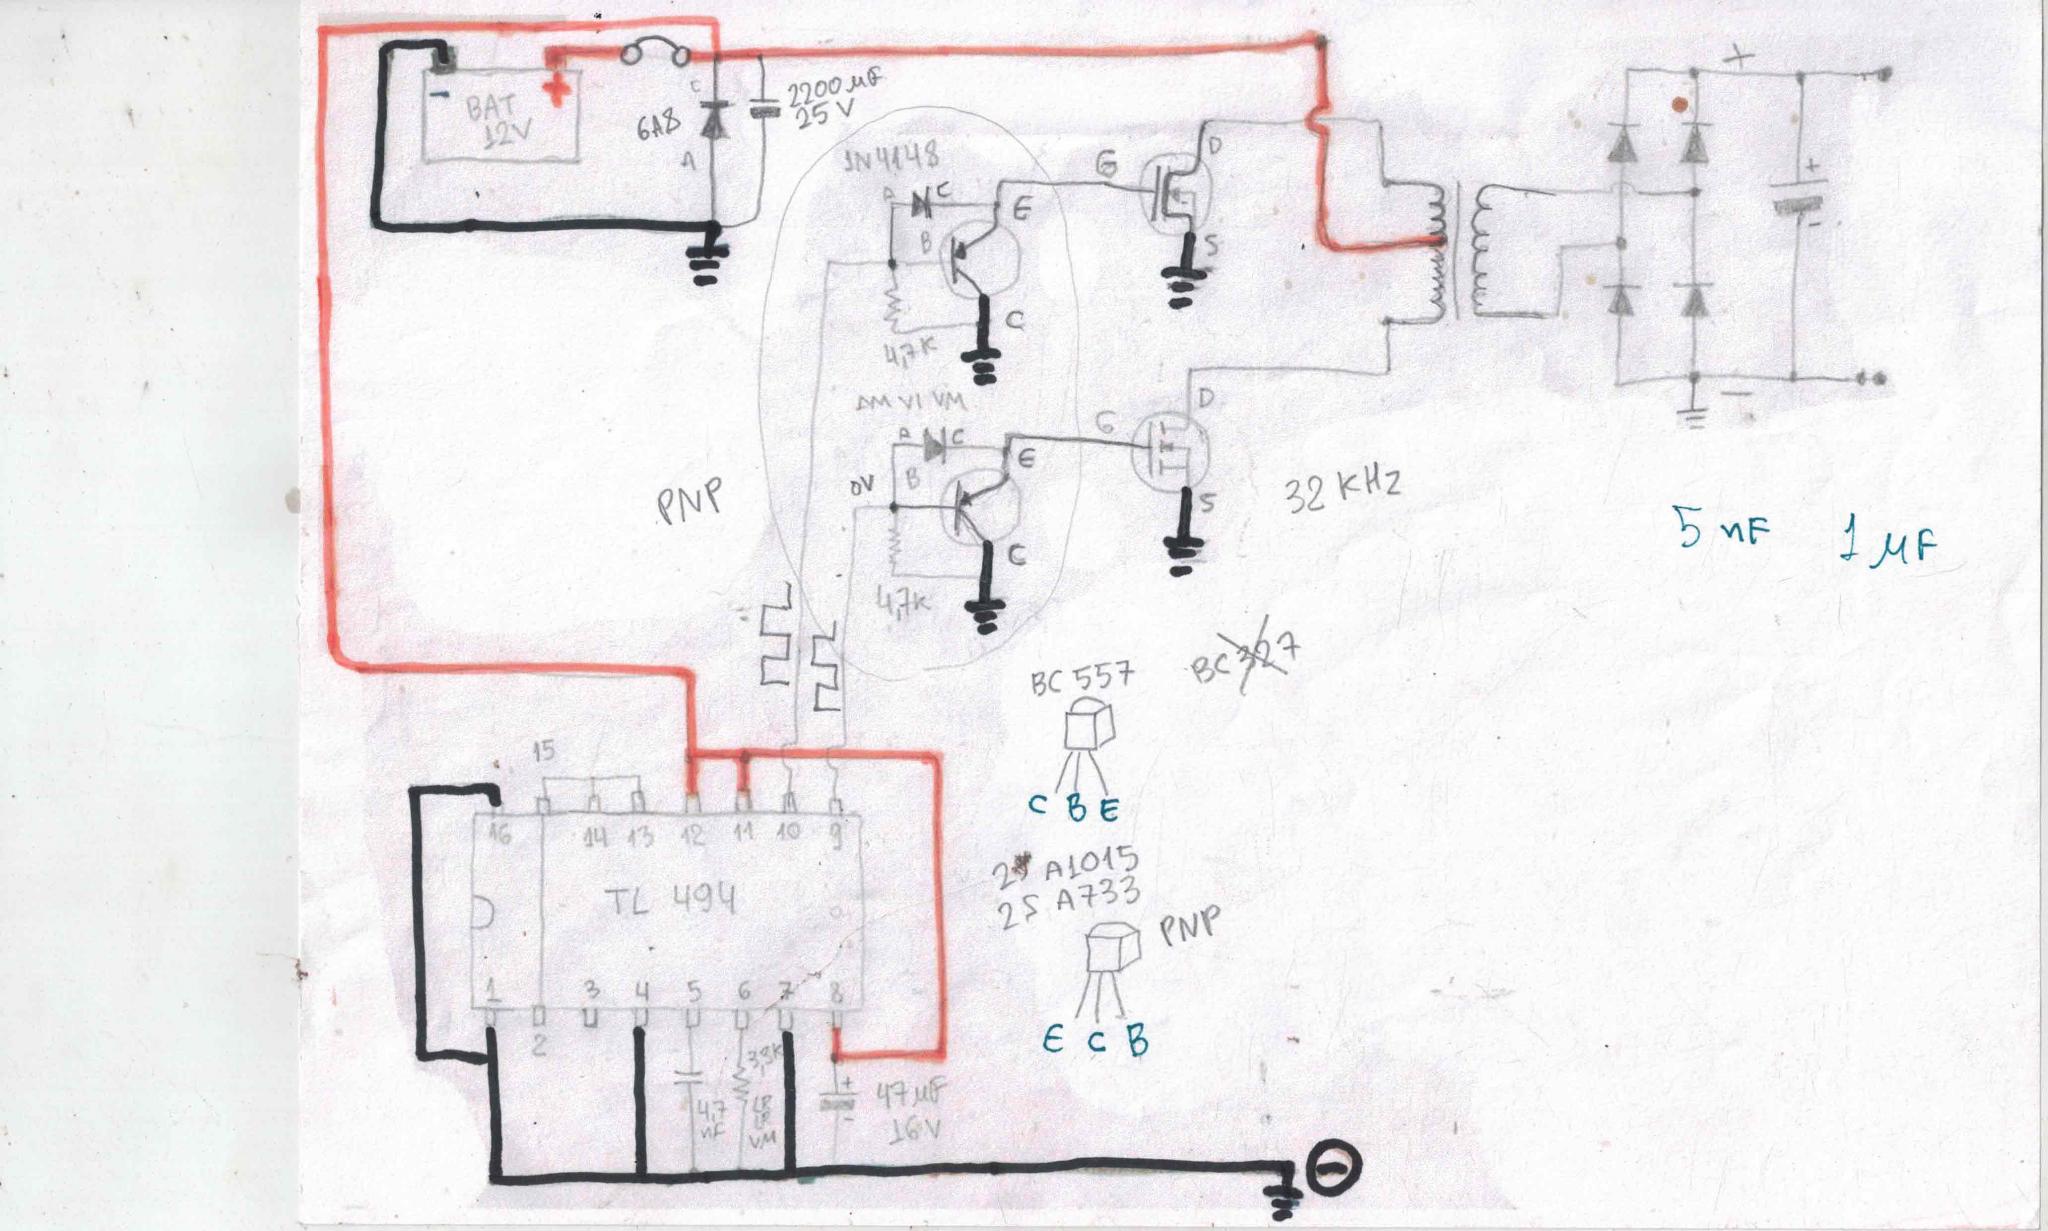 BAT
12V
-
+
6A8
C
A
2200 µF
25 V
1N4148
A
C
B
E
C
4,7K
AM VI VM
A
C
0V
B
E
C
4,7K
PNP
G
D
S
G
D
S
32 KHz
+
+
-
-
5 nF
1 µF
BC 557
C B E
BC 327
2S A1015
2S A733
PNP
E C B
15
16
14
13
12
11
10
9
TL 494
1
2
3
4
5
6
7
8
4,7
nF
3,3K
LR
LR
VM
+
-
47 µF
16 V
-